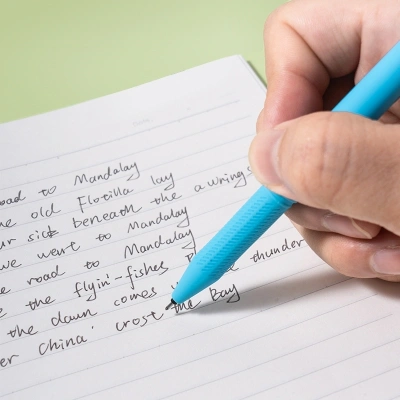 road to Mandalay
he old Flotilla lay
ur sick beneath the awnings
we went to Mandalay
e road to Mandalay
e the flyin'-fishes
the dawn comes thunder
er China' crost the Bay